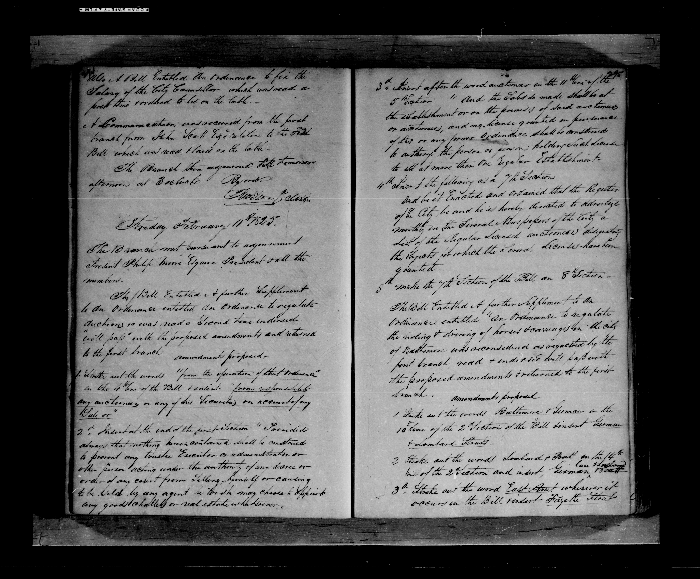 Also A Bill Entitled An Ordinance to fix the
Salary of the City Counsellor which was read a
first time & ordered to lie on the table
A Communication was received from the first
branch from John Scott Esqr relative to the
Bill which was read & laid on the table
The Branch then adjourned till tomorrow
afternoon at 3 oclock
Clerk
Friday February 11th 1825
The Branch met pursuant to adjournment
present Philip Moore Esquire President & all the
members.
The Bill Entitled A further Supplement
to An Ordinance entitled An Ordinance to regulate
auctions was read a Second time endorsed
"will pass" with the proposed amendments and returned
to the first branch
amendments proposed
1 Strike out the words "from the operation of this Ordinance"
in the 4th line of the Bill & insert
any auctioneer or any of his Securities on account of any
Sale or"
2nd Insert at the end of the first Section "Provided
always that nothing herein contained shall be construed
to prevent any trustee Executor or administrator or
other person acting under the authority of any decree or
order of any court from Selling himself or causing
to be Sold by any agent
any goods & chattels or real estate whatsoever
3rd Insert after the word auctioneer in the 11th line of the
5th Section " And the Sales be made shall be at
the establishment or on the premises of said auctioneer
or auctioneers, and no license granted in pursuance
of this or any former Ordinance shall be construed
to authorize the person or persons holding such license
to sell at more than one Regular Establishment.
4th Insert the following as the 7th Section
And be it Enacted and ordained that the Register
of the City be and he is hereby directed to advertise
monthly in the Several Newspapers of the City a
list of the Regular licensed auctioneers designating
the objects for which the Several Licenses have been
granted
5th make the 7th Section of the Bill an 8th Section
The Bill Entitled A further Supplement to An
Ordinance entitled "An Ordinance to regulate
the riding & driving of horses & carriages in the city
of Baltimore was reconsidered as rejected by the
first branch read & endorsed will pass with
the proposed amendments & returned to the first
branch.
amendments proposed
1 Strike out the words Baltimore & German in the
line of the 2d Section of the Bill & insert German
& Lombard Streets
2 Strike out the words Lombard & Pratt in the 14th
line of the 2d Section and insert German
3rd Strike out the word East Street wherever it
occurs in the Bill & insert Fayette Street